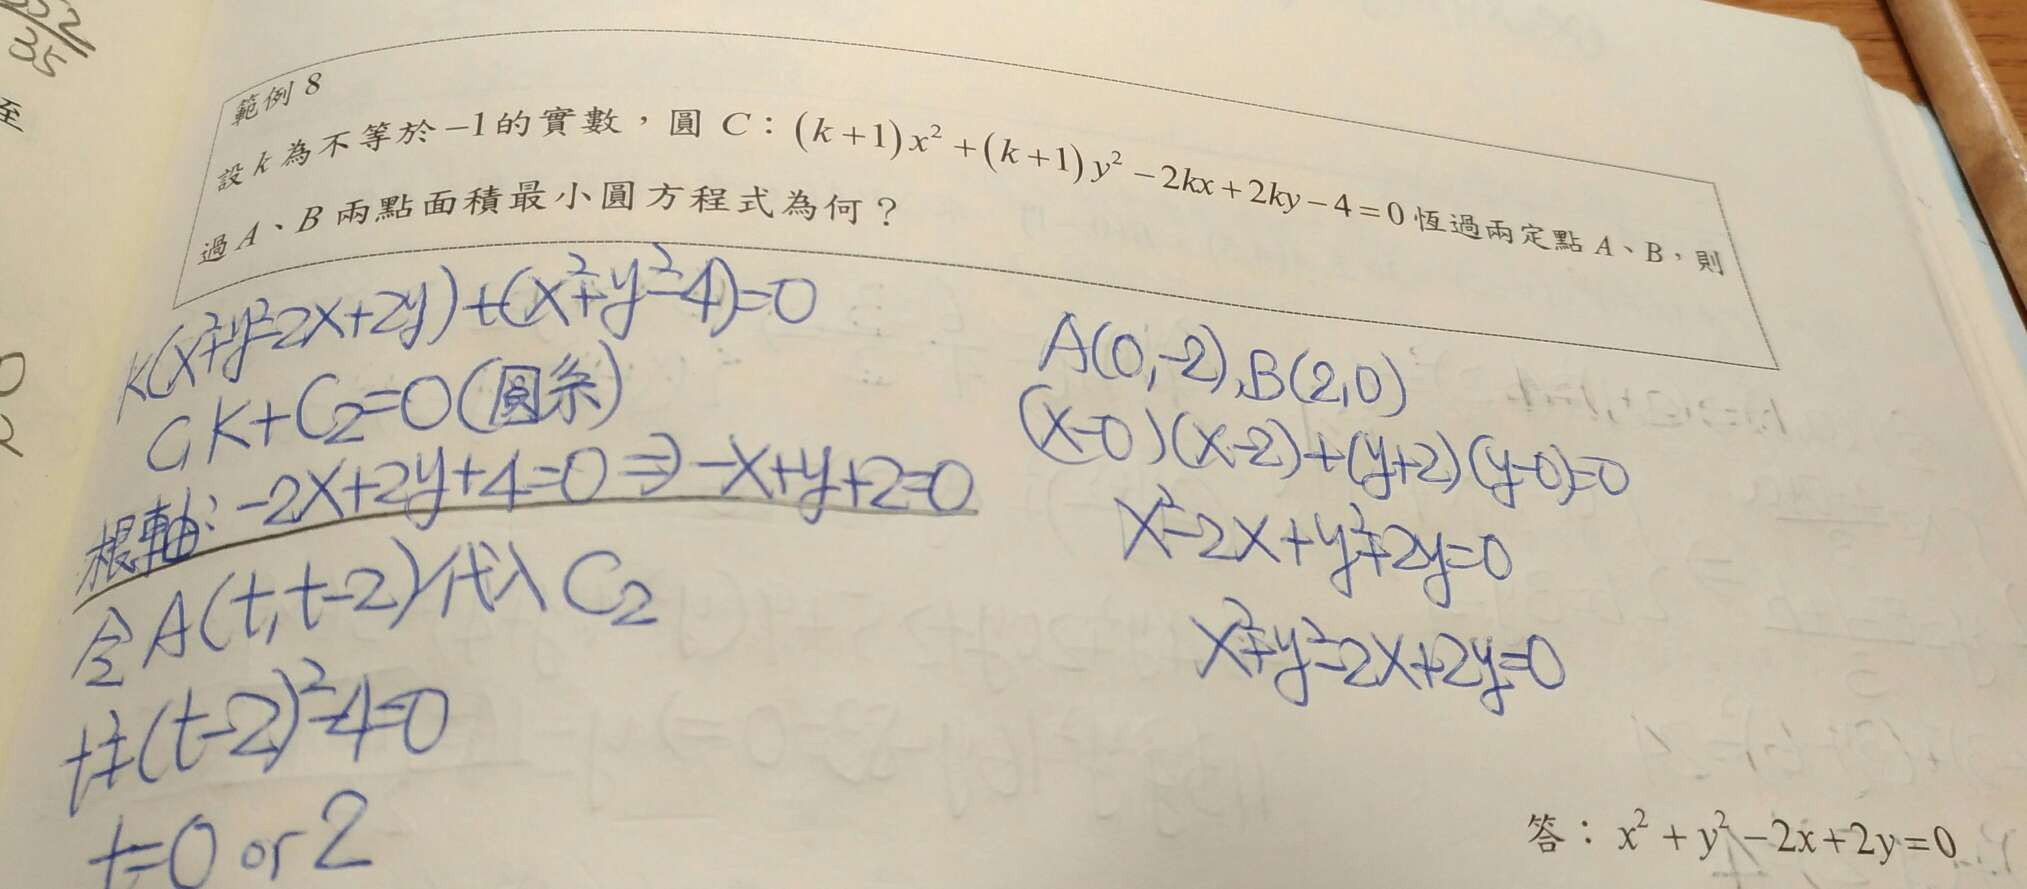 35
至
範例 8
設 k 為不等於 −1 的實數，圓 C：(k+1)x²+(k+1)y²−2kx+2ky−4=0 恆過兩定點 A、B，則
過 A、B 兩點面積最小圓方程式為何？
k(x²+y²-2x+2y)+(x²+y²-4)=0
C₁K+C₂=0(圓系)
根軸:-2x+2y+4=0⇒-x+y+2=0
令A(t,t-2)代入C₂
t²+(t-2)²-4=0
t=0 or 2
A(0,-2),B(2,0)
(x-0)(x-2)+(y+2)(y-0)=0
x²-2x+y²+2y=0
x²+y²-2x+2y=0
答：x²+y²−2x+2y=0